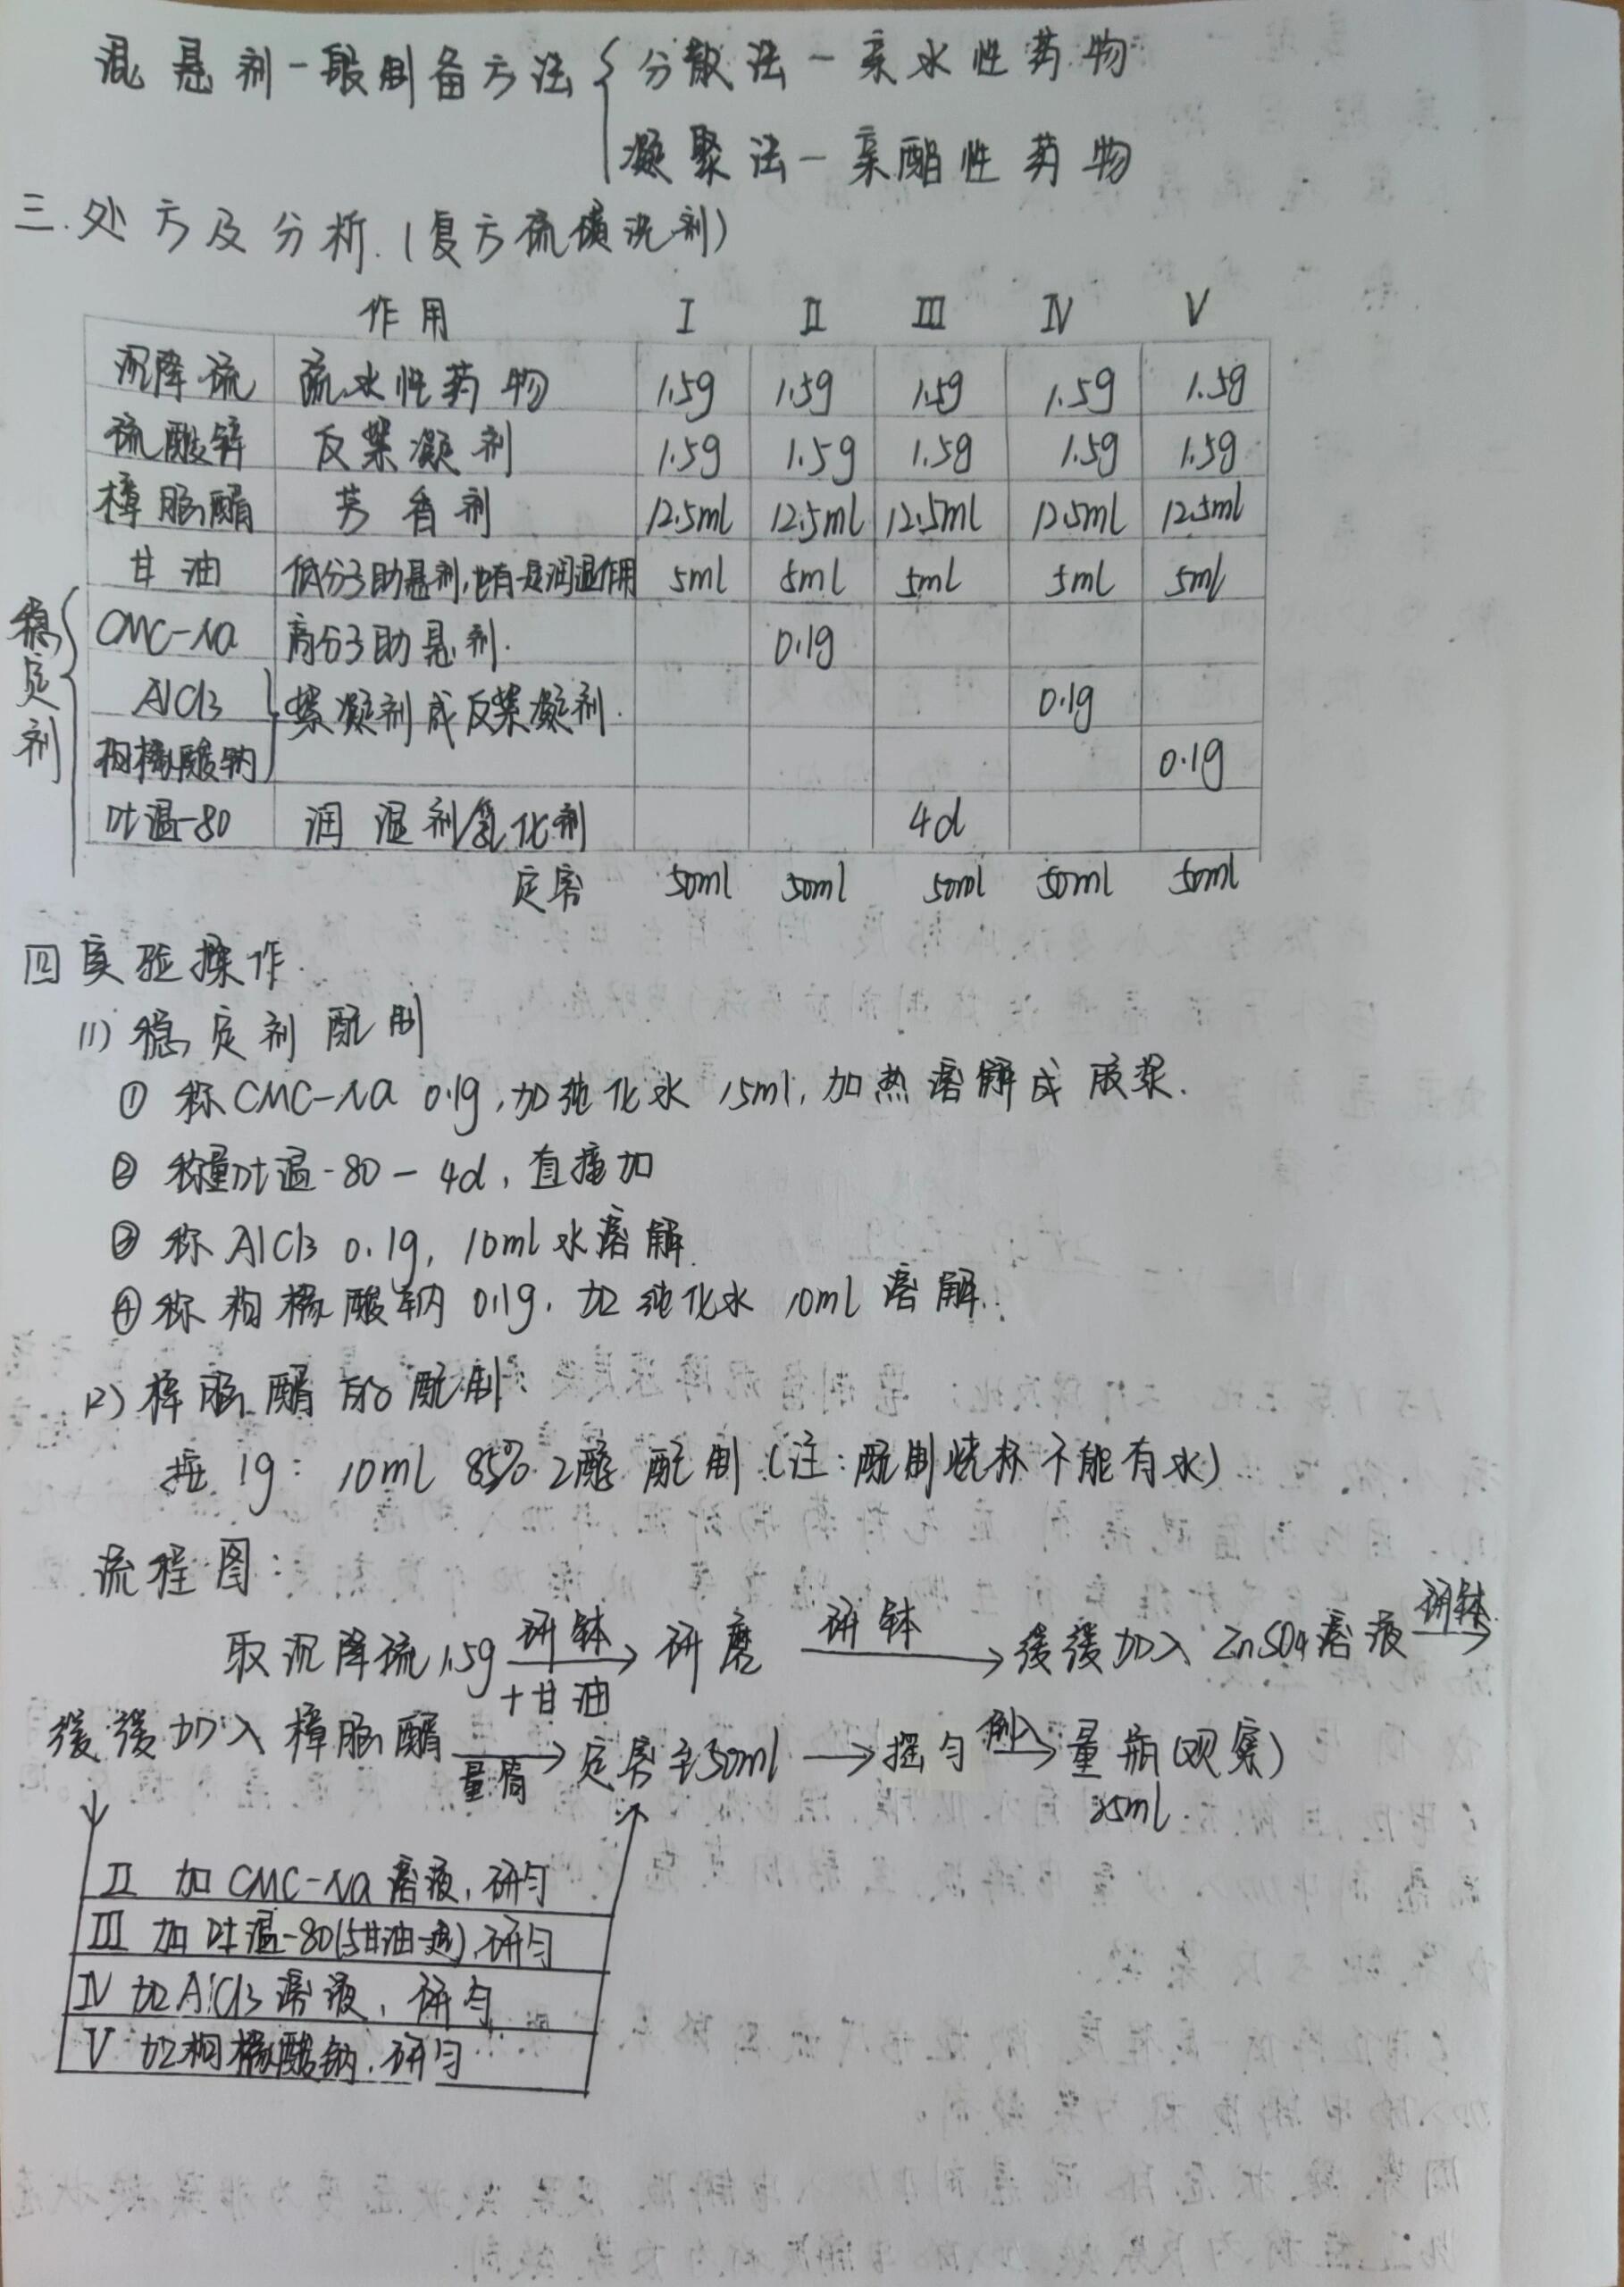 混悬剂一般制备方法 { 分散法 — 亲水性药物
凝聚法 — 亲酯性药物
三.处方及分析.(复方硫磺洗剂)
作用 I II III IV V
沉降硫 疏水性药物 1.5g 1.5g 1.5g 1.5g 1.5g
硫酸锌 反絮凝剂 1.5g 1.5g 1.5g 1.5g 1.5g
樟脑醑 芳香剂 12.5ml 12.5ml 12.5ml 12.5ml 12.5ml
甘油 低分子助悬剂,也有一定润湿作用 5ml 5ml 5ml 5ml 5ml
稳定剂
CMC-Na 高分子助悬剂. 0.1g
AlCl3 絮凝剂或反絮凝剂. 0.1g
枸橼酸钠 0.1g
吐温-80 润湿剂/乳化剂 4d
定容 50ml 50ml 50ml 50ml 50ml
四 实验操作.
(1) 稳定剂配制
① 称CMC-Na 0.1g,加纯化水 15ml,加热溶解成胶浆.
② 称量吐温-80 — 4d,直接加
③ 称AlCl3 0.1g, 10ml水溶解.
④ 称枸橼酸钠 0.1g.加纯化水 10ml 溶解.
(2) 樟脑醑的配制
按 1g: 10ml 85% 乙醇配制(注:配制烧杯不能有水)
流程图:
取沉降硫1.5g 研钵 +甘油 → 研磨 研钵 → 缓缓加入 ZnSO4溶液 研钵 →
缓缓加入樟脑醑 量筒 → 定容至50ml → 摇匀 倒入 → 量瓶(观察)
25ml
II 加CMC-Na溶液,研匀
III 加吐温-80(与甘油一起).研匀
IV 加AlCl3溶液,研匀
V 加枸橼酸钠.研匀